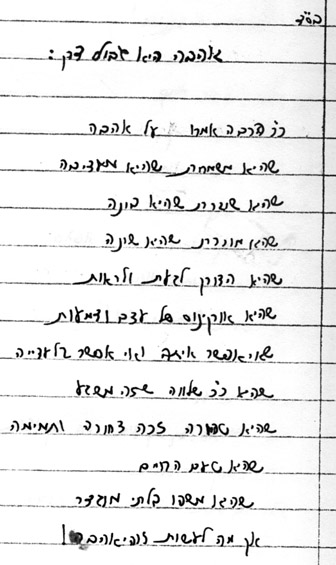 בס"ד
אהבה היא גבול דק:
כ"כ הרבה אמרו על אהבה
שהיא משמחת שהיא מעציבה
שהיא שוברת שהיא בונה
שהיא מוכרת שהיא שונה
שהיא הצורך לגעת ולראות
שהיא אוקינוס של עצב ודמעות
שאי אפשר איתה ואי אפשר בלעדייה
שהיא כ"כ שלווה שזה משגע
שהיא טהורה זכה צחורה ותמימה
שהיא טעם החיים
שהיא משהו בלתי מוגדר
אך מה לעשות זוהי אהבה!